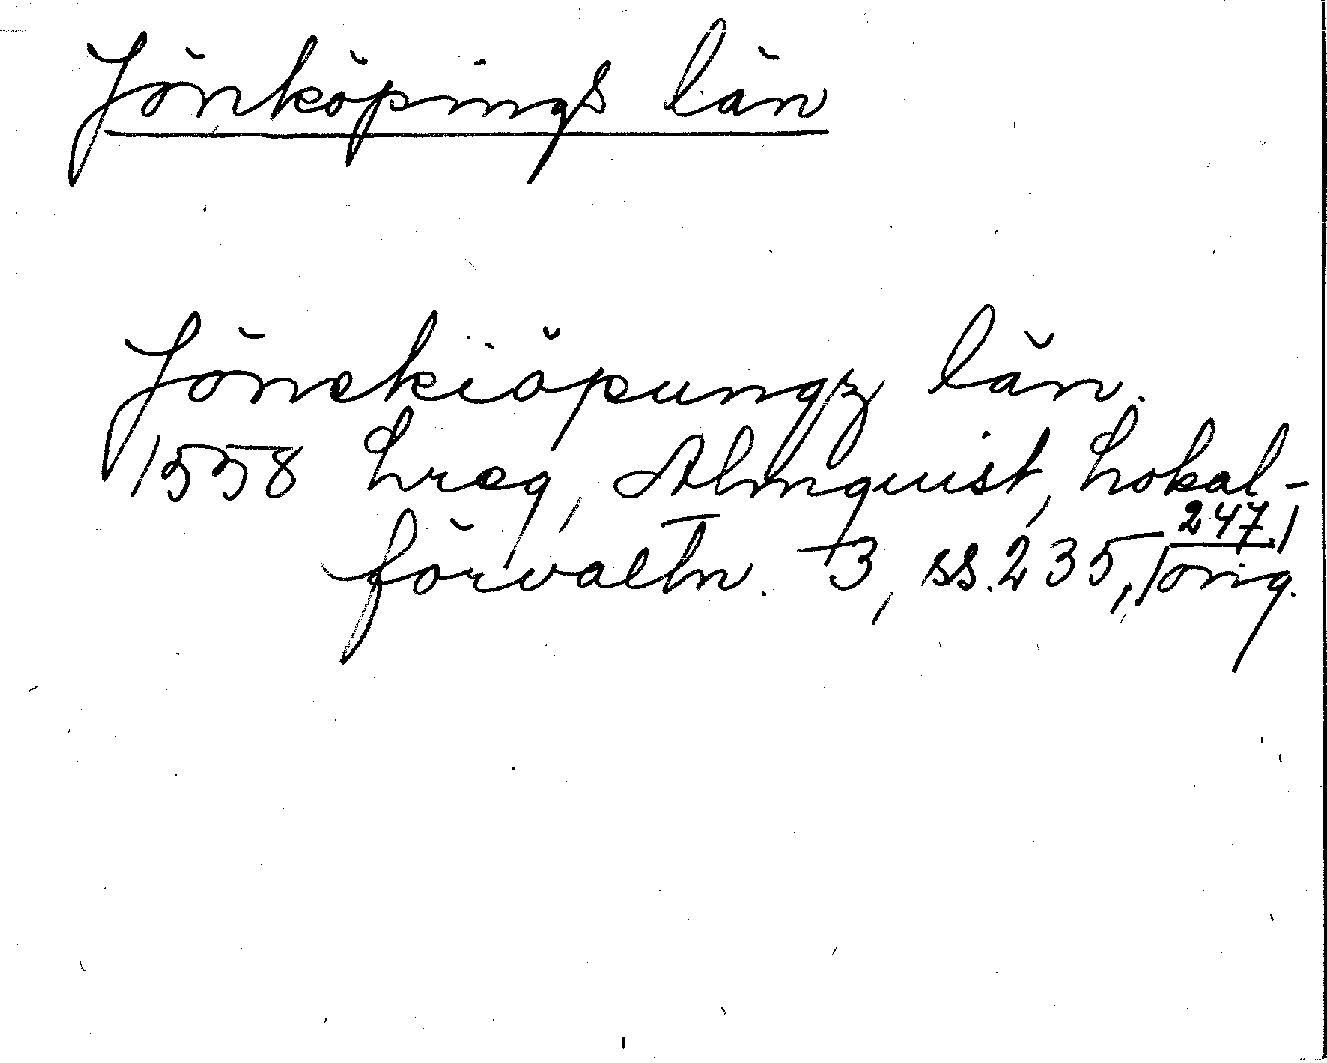 Jönköpings län
Jönekiöpungz län.
1558 Lreg, Almquist, Lokal-
förvaltn. 3, ss. 235, 247. orig.